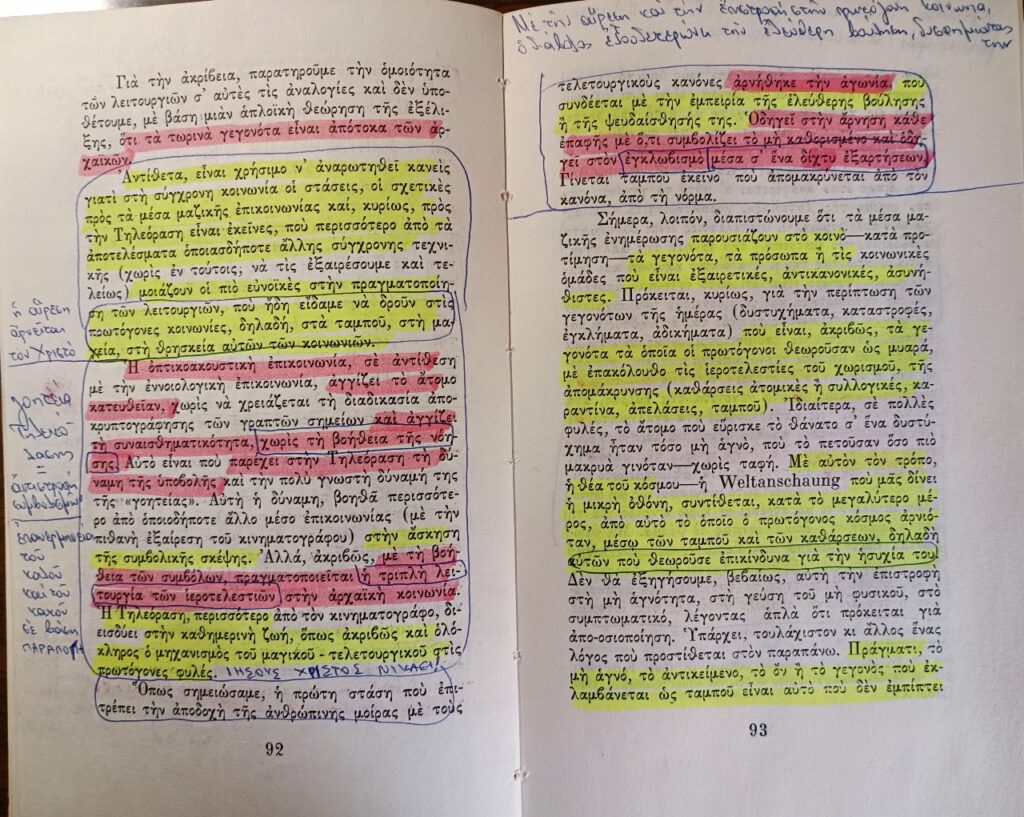 Γιὰ τὴν ἀκρίβεια, παρατηροῦμε τὴν ὁμοιότητα
τῶν λειτουργιῶν σ' αὐτὲς τὶς ἀναλογίες καὶ δὲν ὑπο-
θέτουμε, μὲ βάση μιὰν ἁπλοϊκὴ θεώρηση τῆς ἐξέλι-
ξης, ὅτι τὰ τωρινὰ γεγονότα εἶναι ἀπότοκα τῶν ἀρ-
χαϊκῶν.
Ἀντίθετα, εἶναι χρήσιμο ν' ἀναρωτηθεῖ κανεὶς
γιατὶ στὴ σύγχρονη κοινωνία οἱ στάσεις, οἱ σχετικὲς
πρὸς τὰ μέσα μαζικῆς ἐπικοινωνίας καί, κυρίως, πρὸς
τὴν Τηλεόραση εἶναι ἐκεῖνες, ποὺ περισσότερο ἀπὸ τὰ
ἀποτελέσματα ὁποιασδήποτε ἄλλης σύγχρονης τεχνι-
κῆς (χωρὶς ἐν τούτοις, νὰ τὶς ἐξαιρέσουμε καὶ τε-
λείως) μοιάζουν οἱ πιὸ εὐνοϊκὲς στὴν πραγματοποίη-
ση τῶν λειτουργιῶν, ποὺ ἤδη εἴδαμε νὰ δροῦν στὶς
πρωτόγονες κοινωνίες, δηλαδή, στὰ ταμπού, στὴ μα-
γεία, στὴ θρησκεία αὐτῶν τῶν κοινωνιῶν.
Ἡ ὀπτικοακουστικὴ ἐπικοινωνία, σὲ ἀντίθεση
μὲ τὴν ἐννοιολογικὴ ἐπικοινωνία, ἀγγίζει τὸ ἄτομο
κατευθεῖαν, χωρὶς νὰ χρειάζεται τὴ διαδικασία ἀπο-
κρυπτογράφησης τῶν γραπτῶν σημείων καὶ ἀγγίζει
τὴ συναισθηματικότητα, χωρὶς τὴ βοήθεια τῆς νόη-
σης. Αὐτὸ εἶναι ποὺ παρέχει στὴν Τηλεόραση τὴ δύ-
ναμη τῆς ὑποβολῆς καὶ τὴν πολὺ γνωστὴ δύναμη της
τῆς «γοητείας». Αὐτὴ ἡ δύναμη, βοηθᾶ περισσότε-
ρο ἀπὸ ὁποιοδήποτε ἄλλο μέσο ἐπικοινωνίας (μὲ τὴν
πιθανὴ ἐξαίρεση τοῦ κινηματογράφου) στὴν ἄσκηση
τῆς συμβολικῆς σκέψης. Ἀλλά, ἀκριβῶς, μὲ τὴ βοή-
θεια τῶν συμβόλων, πραγματοποιεῖται ἡ τριπλὴ λει-
τουργία τῶν ἱεροτελεστιῶν στὴν ἀρχαϊκὴ κοινωνία.
Ἡ Τηλεόραση, περισσότερο ἀπὸ τὸν κινηματογράφο, δι-
εισδύει στὴν καθημερινὴ ζωή, ὅπως ἀκριβῶς καὶ ὁλό-
κληρος ὁ μηχανισμὸς τοῦ μαγικοῦ - τελετουργικοῦ στὶς
πρωτόγονες φυλές. ΙΗΣΟΥΣ ΧΡΙΣΤΟΣ ΝΙΚΑ
Ὅπως σημειώσαμε, ἡ πρώτη στάση ποὺ ἐπι-
τρέπει τὴν ἀποδοχὴ τῆς ἀνθρώπινης μοίρας μὲ τοὺς
92
ἡ αἵρεση
ἀρνεῖται
τὸν Χριστὸ
γοητεία
Τηλεο
ρασης
=
ἀντιστροφὴ
συμβόλων
τοῦ
καλοῦ
καὶ τοῦ
κακοῦ
σὲ βάση
Μὲ τὴν αἵρεση καὶ τὴν ἐπιστροφὴ στὴν πρωτόγονη κοινωνία,
ὁ διάβολος ἐξουδετερώνει τὴν ἐλεύθερη βούληση, δυσφημώντας
την
τελετουργικοὺς κανόνες ἀρνήθηκε τὴν ἀγωνία, ποὺ
συνδέεται μὲ τὴν ἐμπειρία τῆς ἐλεύθερης βούλησης
ἢ τῆς ψευδαίσθησής της. Ὁδηγεῖ στὴν ἄρνηση κάθε
ἐπαφῆς μὲ ὅ,τι συμβολίζει τὸ μὴ καθορισμένο καὶ ὁδη-
γεῖ στὸν ἐγκλωβισμὸ μέσα σ' ἕνα δίχτυ ἐξαρτήσεων.
Γίνεται ταμποὺ ἐκεῖνο ποὺ ἀπομακρύνεται ἀπὸ τὸν
κανόνα, ἀπὸ τὴ νόρμα.
Σήμερα, λοιπόν, διαπιστώνουμε ὅτι τὰ μέσα μα-
ζικῆς ἐνημέρωσης παρουσιάζουν στὸ κοινὸ—κατὰ προ-
τίμηση—τὰ γεγονότα, τὰ πρόσωπα ἢ τὶς κοινωνικὲς
ὁμάδες ποὺ εἶναι ἐξαιρετικές, ἀντικανονικές, ἀσυνή-
θιστες. Πρόκειται, κυρίως, γιὰ τὴν περίπτωση τῶν
γεγονότων τῆς ἡμέρας (δυστυχήματα, καταστροφές,
ἐγκλήματα, ἀδικήματα) ποὺ εἶναι, ἀκριβῶς, τὰ γε-
γονότα τὰ ὁποῖα οἱ πρωτόγονοι θεωροῦσαν ὡς μυαρά,
μὲ ἐπακόλουθο τὶς ἱεροτελεστίες τοῦ χωρισμοῦ, τῆς
ἀπομάκρυνσης (καθάρσεις ἀτομικὲς ἢ συλλογικές, κα-
ραντίνα, ἀπελάσεις, ταμπού). Ἰδιαίτερα, σὲ πολλὲς
φυλές, τὸ ἄτομο ποὺ εὕρισκε τὸ θάνατο σ' ἕνα δυστύ-
χημα ἦταν τόσο μὴ ἁγνό, ποὺ τὸ πετοῦσαν ὅσο πιὸ
μακρυὰ γινόταν—χωρὶς ταφή. Μὲ αὐτὸν τὸν τρόπο,
ἡ θέα τοῦ κόσμου—ἡ Weltanschaung ποὺ μᾶς δίνει
ἡ μικρὴ ὀθόνη, συντίθεται, κατὰ τὸ μεγαλύτερο μέ-
ρος, ἀπὸ αὐτὸ τὸ ὁποῖο ὁ πρωτόγονος κόσμος ἀρνιό-
ταν, μέσω τῶν ταμποὺ καὶ τῶν καθάρσεων, δηλαδὴ
αὐτῶν ποὺ θεωροῦσε ἐπικίνδυνα γιὰ τὴν ἡσυχία του.
Δὲν θὰ ἐξηγήσουμε, βεβαίως, αὐτὴ τὴν ἐπιστροφὴ
στὴ μὴ ἁγνότητα, στὴ γεύση τοῦ μὴ φυσικοῦ, στὸ
συμπτωματικό, λέγοντας ἁπλὰ ὅτι πρόκειται γιὰ
ἀπο-οσιοποίηση. Ὑπάρχει, τουλάχιστον κι ἄλλος ἕνας
λόγος ποὺ προστίθεται στὸν παραπάνω. Πράγματι, τὸ
μὴ ἁγνό, τὸ ἀντικείμενο, τὸ ὂν ἢ τὸ γεγονὸς ποὺ ἐκ-
λαμβάνεται ὡς ταμποὺ εἶναι αὐτὸ ποὺ δὲν ἐμπίπτει
93